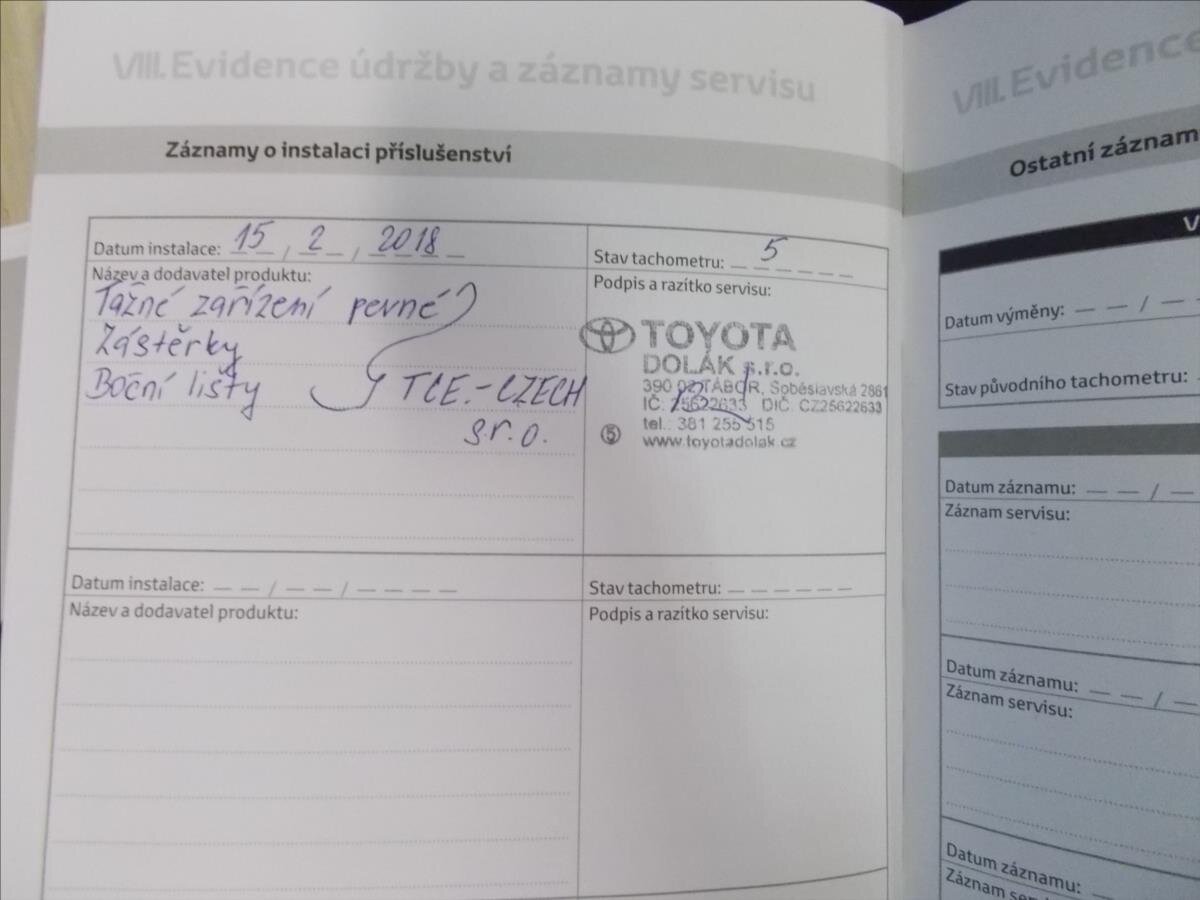 VIII. Evidence údržby a záznamy servisu
Záznamy o instalaci příslušenství
Datum instalace: 15 / 2 / 2018
Stav tachometru: 5
Název a dodavatel produktu:
Podpis a razítko servisu:
Tažné zařízení pevné
Zástěrky
Boční lišty TCE.-CZECH
s.r.o.
TOYOTA
DOLÁK s.r.o.
390 02 TÁBOR, Soběslavská 2861
IČ: 25622633 DIČ: CZ25622633
tel.: 381 255 515
⑤ www.toyotadolak.cz
Datum instalace: / /
Stav tachometru:
Název a dodavatel produktu:
Podpis a razítko servisu:
VIII. Evidence
Ostatní záznam
V
Datum výměny: /
Stav původního tachometru:
Datum záznamu: /
Záznam servisu:
Datum záznamu: /
Záznam servisu:
Datum záznamu:
Záznam